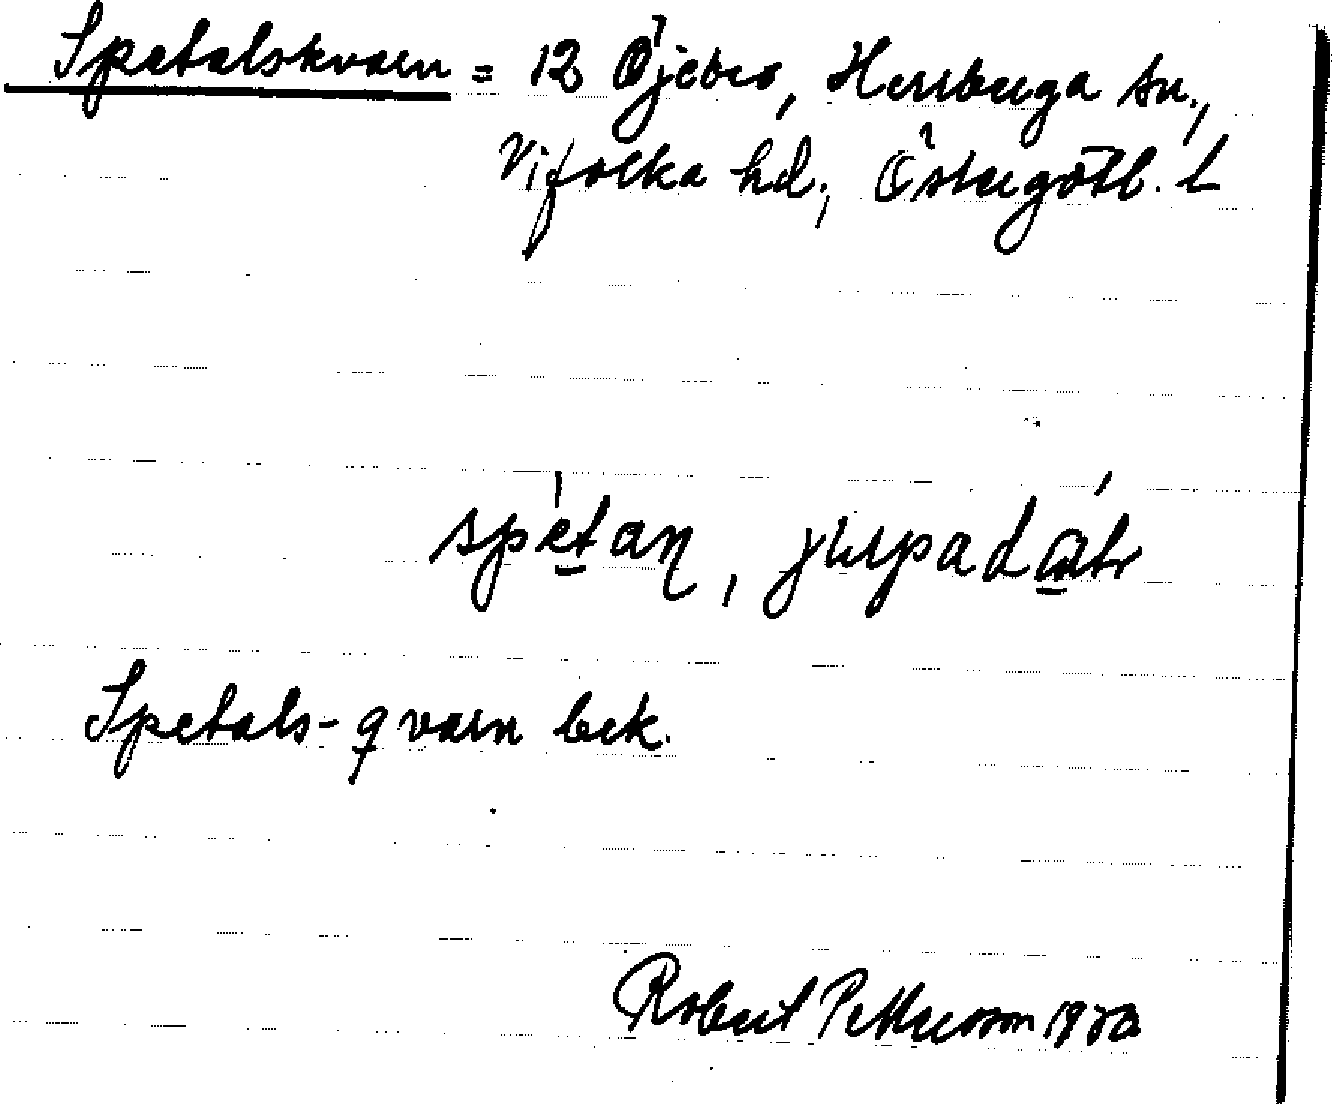 Spetalskvarn = 12 Öjebro, Herrberga sn.,
Vifolka hd., Östergötl. l
spetan,
Spetals-qvarn bek.
Robert Pettersson